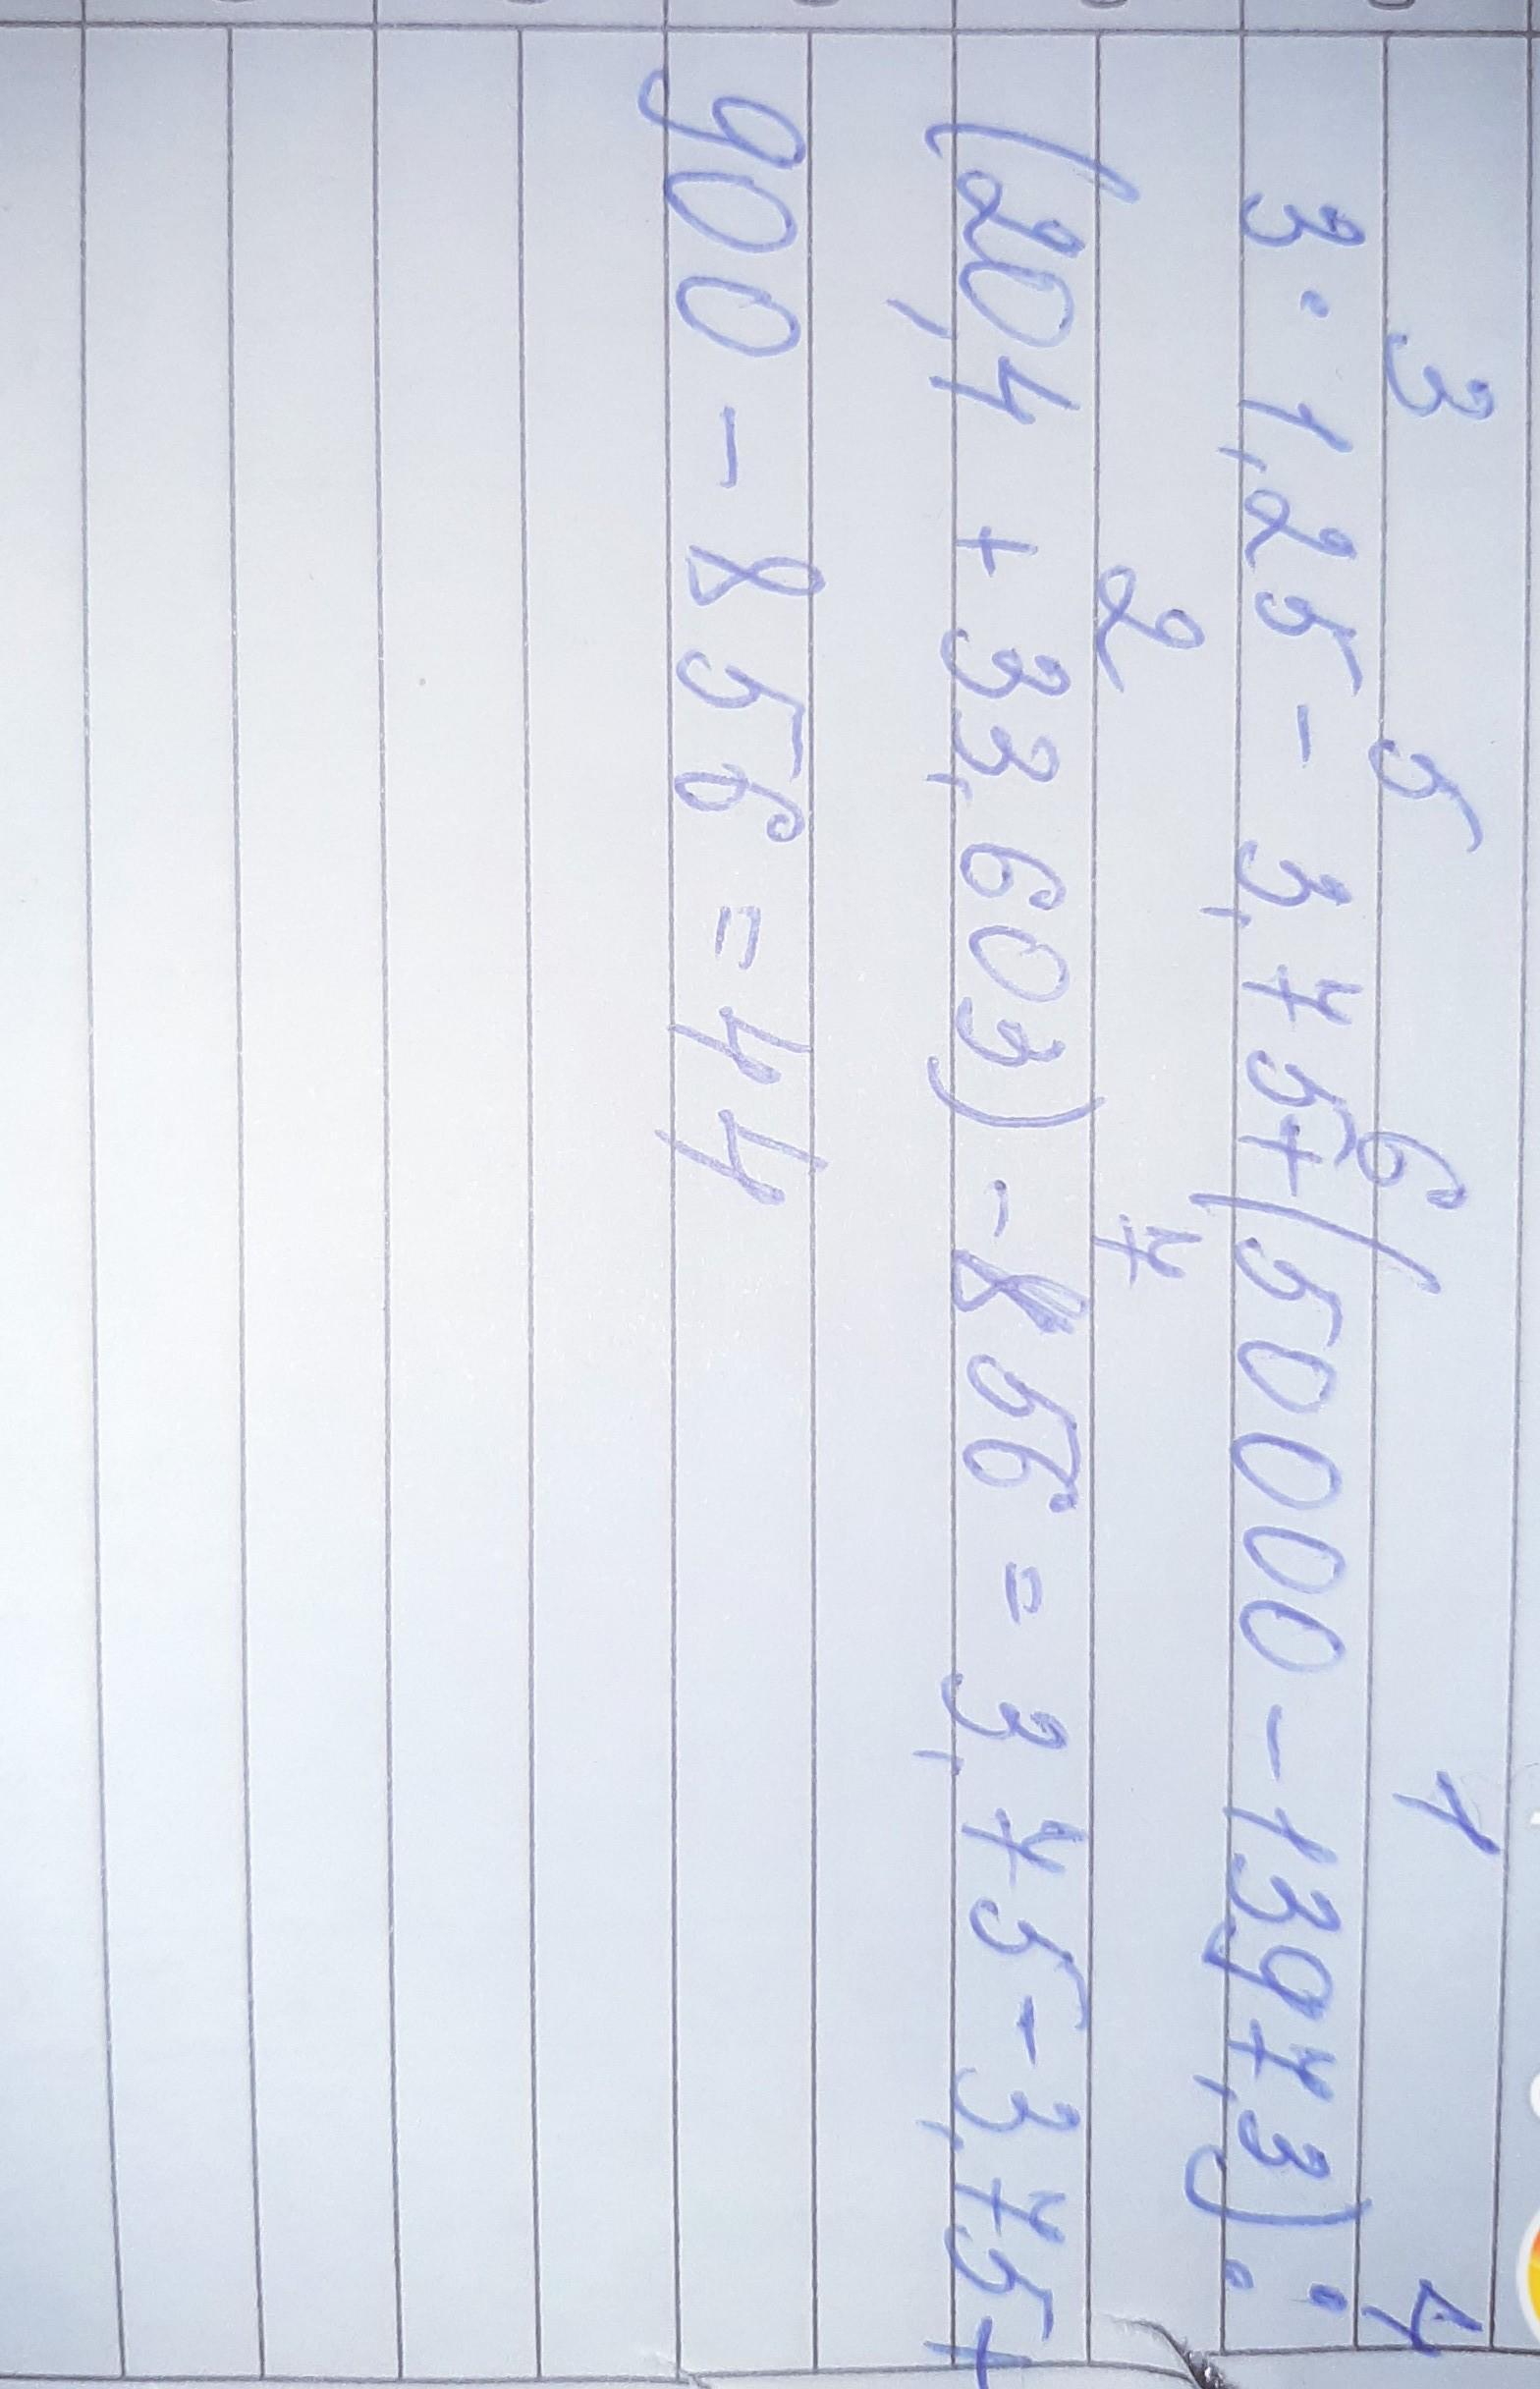 3 5 6 1 4
3 · 1,25 - 3,75 + (50000 - 1397,3) :
2 7
(20,4 + 33,603) - 856 = 3,75 - 3,75 +
900 - 856 = 44